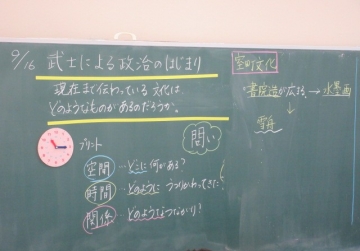 9/16 武士による政治のはじまり
現在まで伝わっている文化は、
どのようなものがあるのだろうか。
プリント
問い
空間…どこに何がある?
時間…どのように うつりかわってきた?
関係…どのようなつながり?
室町文化
書院造が広まる → 水墨画
↓
雪舟